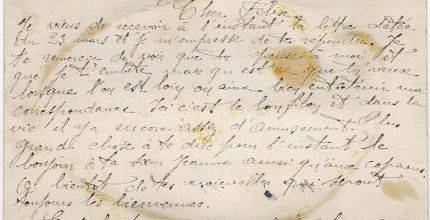 Cher Felix
Je viens de recevoir à l'instant ta lettre datée
du 23 mars et je m'empresse de te répondre. Je
te remercie de voir que tu pense à moi et
que je t'embête mais qu'est que tu veux
lorsque l'on est loin on aime bien entretenir une
correspondance. Ici c'est le bon filon et dans la
vie il y a encore assez d'amusement. Plus
grand chose à te dire pour l'instant le
bonjour à ta sœur Jeanne ainsi qu'aux copains.
A bientôt de tes nouvelles qui seront
toujours les bienvenues.